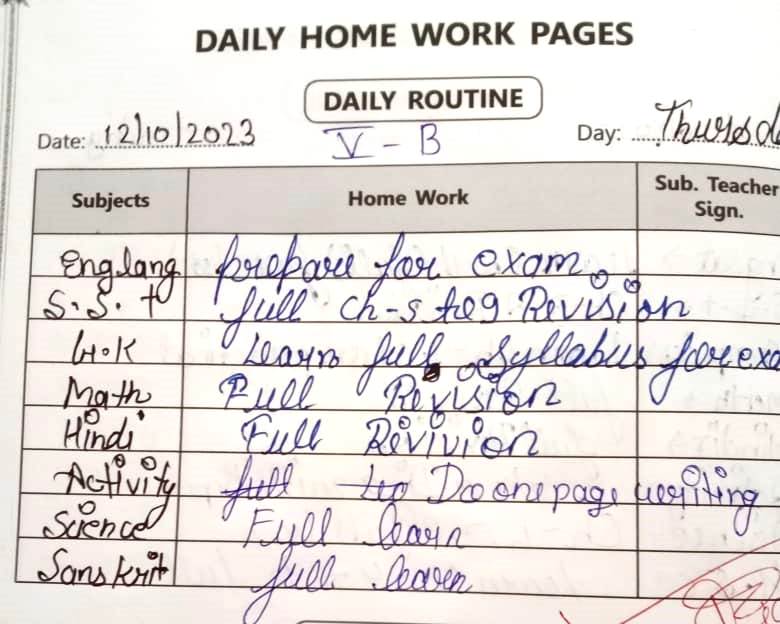 DAILY HOME WORK PAGES
DAILY ROUTINE
Date: 12/10/2023 V - B Day: Thursda
Subjects Home Work Sub. Teacher Sign.
Englang prepare for exam.
S.S.t full ch-5 to 9. Revision
G.K Learn full syllabus for exa
Math Full Revision
Hindi Full Rivivion
Activity Do one page writing
Science Fyll learn
Sanskrit full learn